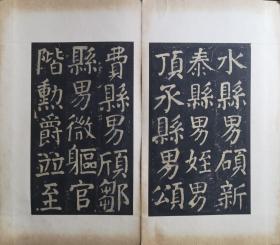 水縣男碩新
泰縣男姪男
頂承縣男頌
費縣男頎鄒
縣男微軀官
階勳爵並至